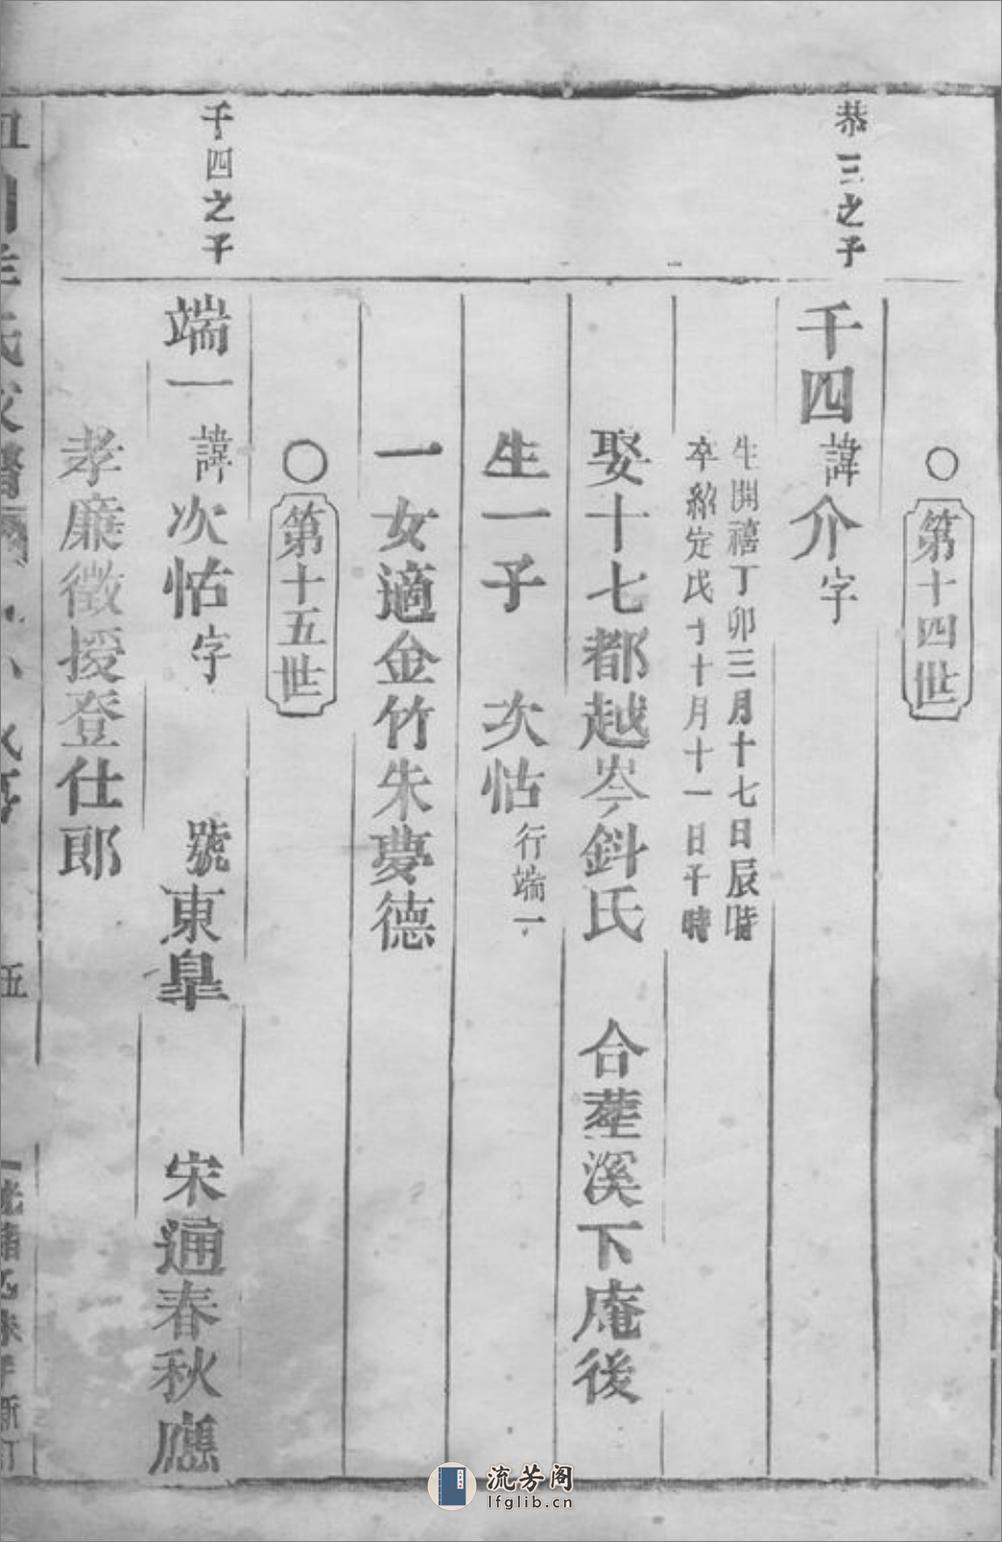 恭三之子
○第十四世
千四諱介字
生開禧丁卯三月十七日辰時
卒紹定戊子十月十一日午時
娶十七都越岑鈄氏 合葬溪下庵後
生一子 次怗行端一
一女適金竹朱夢德
○第十五世
千四之子
端一諱次怗字 號東臯 宋通春秋應
孝廉徵授登仕郎
伍
流芳阁
lfglib.cn